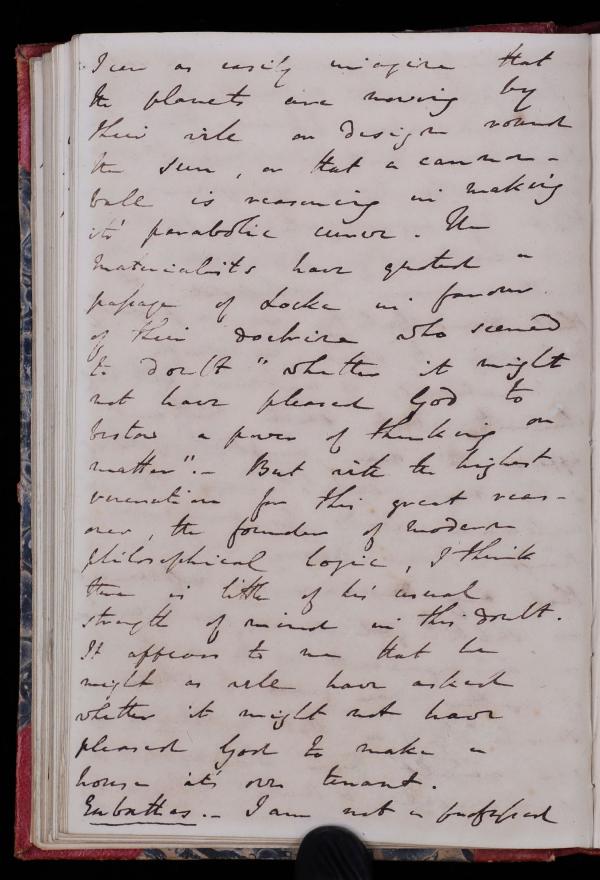 I can as easily imagine that
the planets are moving by
their will or design round
the sun, or that a cannon-
ball is reasoning in making
its parabolic curve. The
materialists have quoted a
passage of Locke in favour
of their doctrine who seemed
to doubt "whether it might
not have pleased God to
bestow a power of thinking on
matter".- But with the highest
veneration for this great reas-
oner, the founder of modern
philosophical logic, I think
there is little of his usual
strength of mind in this doubt.
It appears to me that he
might as well have asked
whether it might not have
pleased God to make a
house it's own tenant.
Eubathes.- I am not a professed